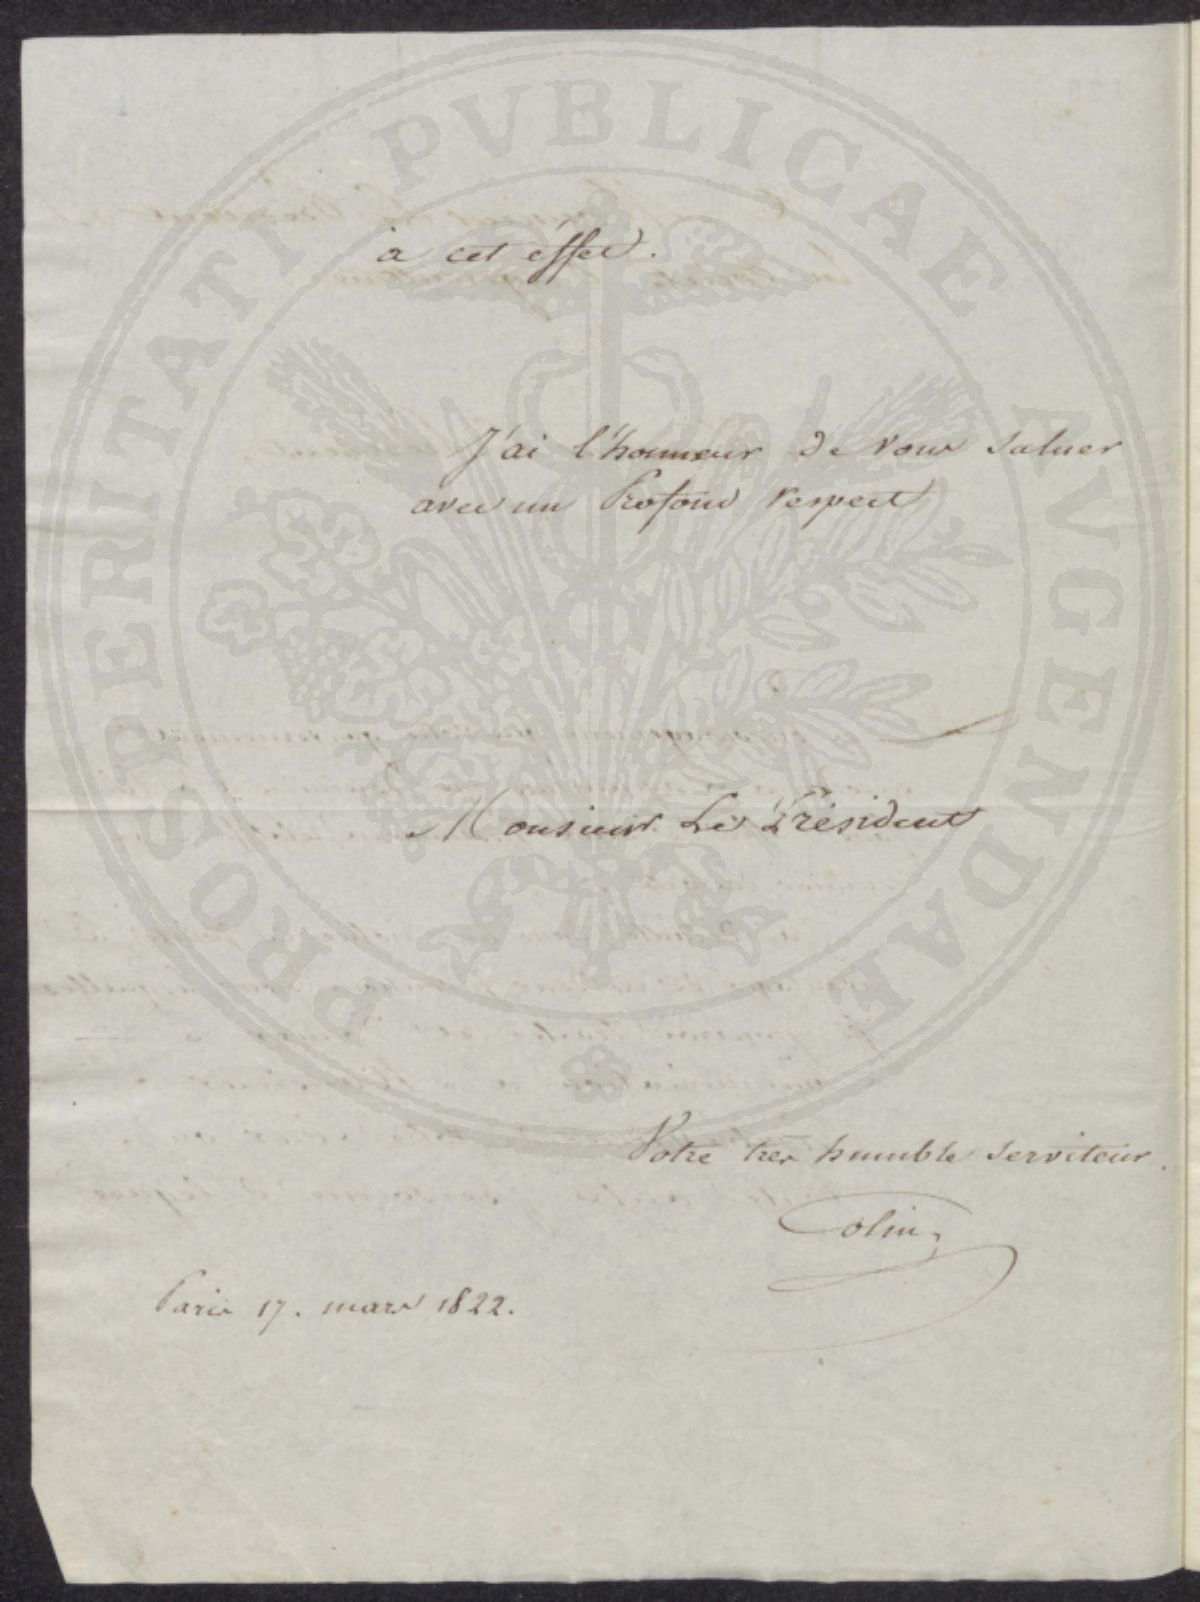 à cet éffet.
J'ai l'honneur de vous saluer
avec un Profond respect
Monsieur Le Président
Votre tres humble serviteur.
Colin
Paris 17. mars 1822.
PROSPERITATI PVBLICAE AVGENDAE